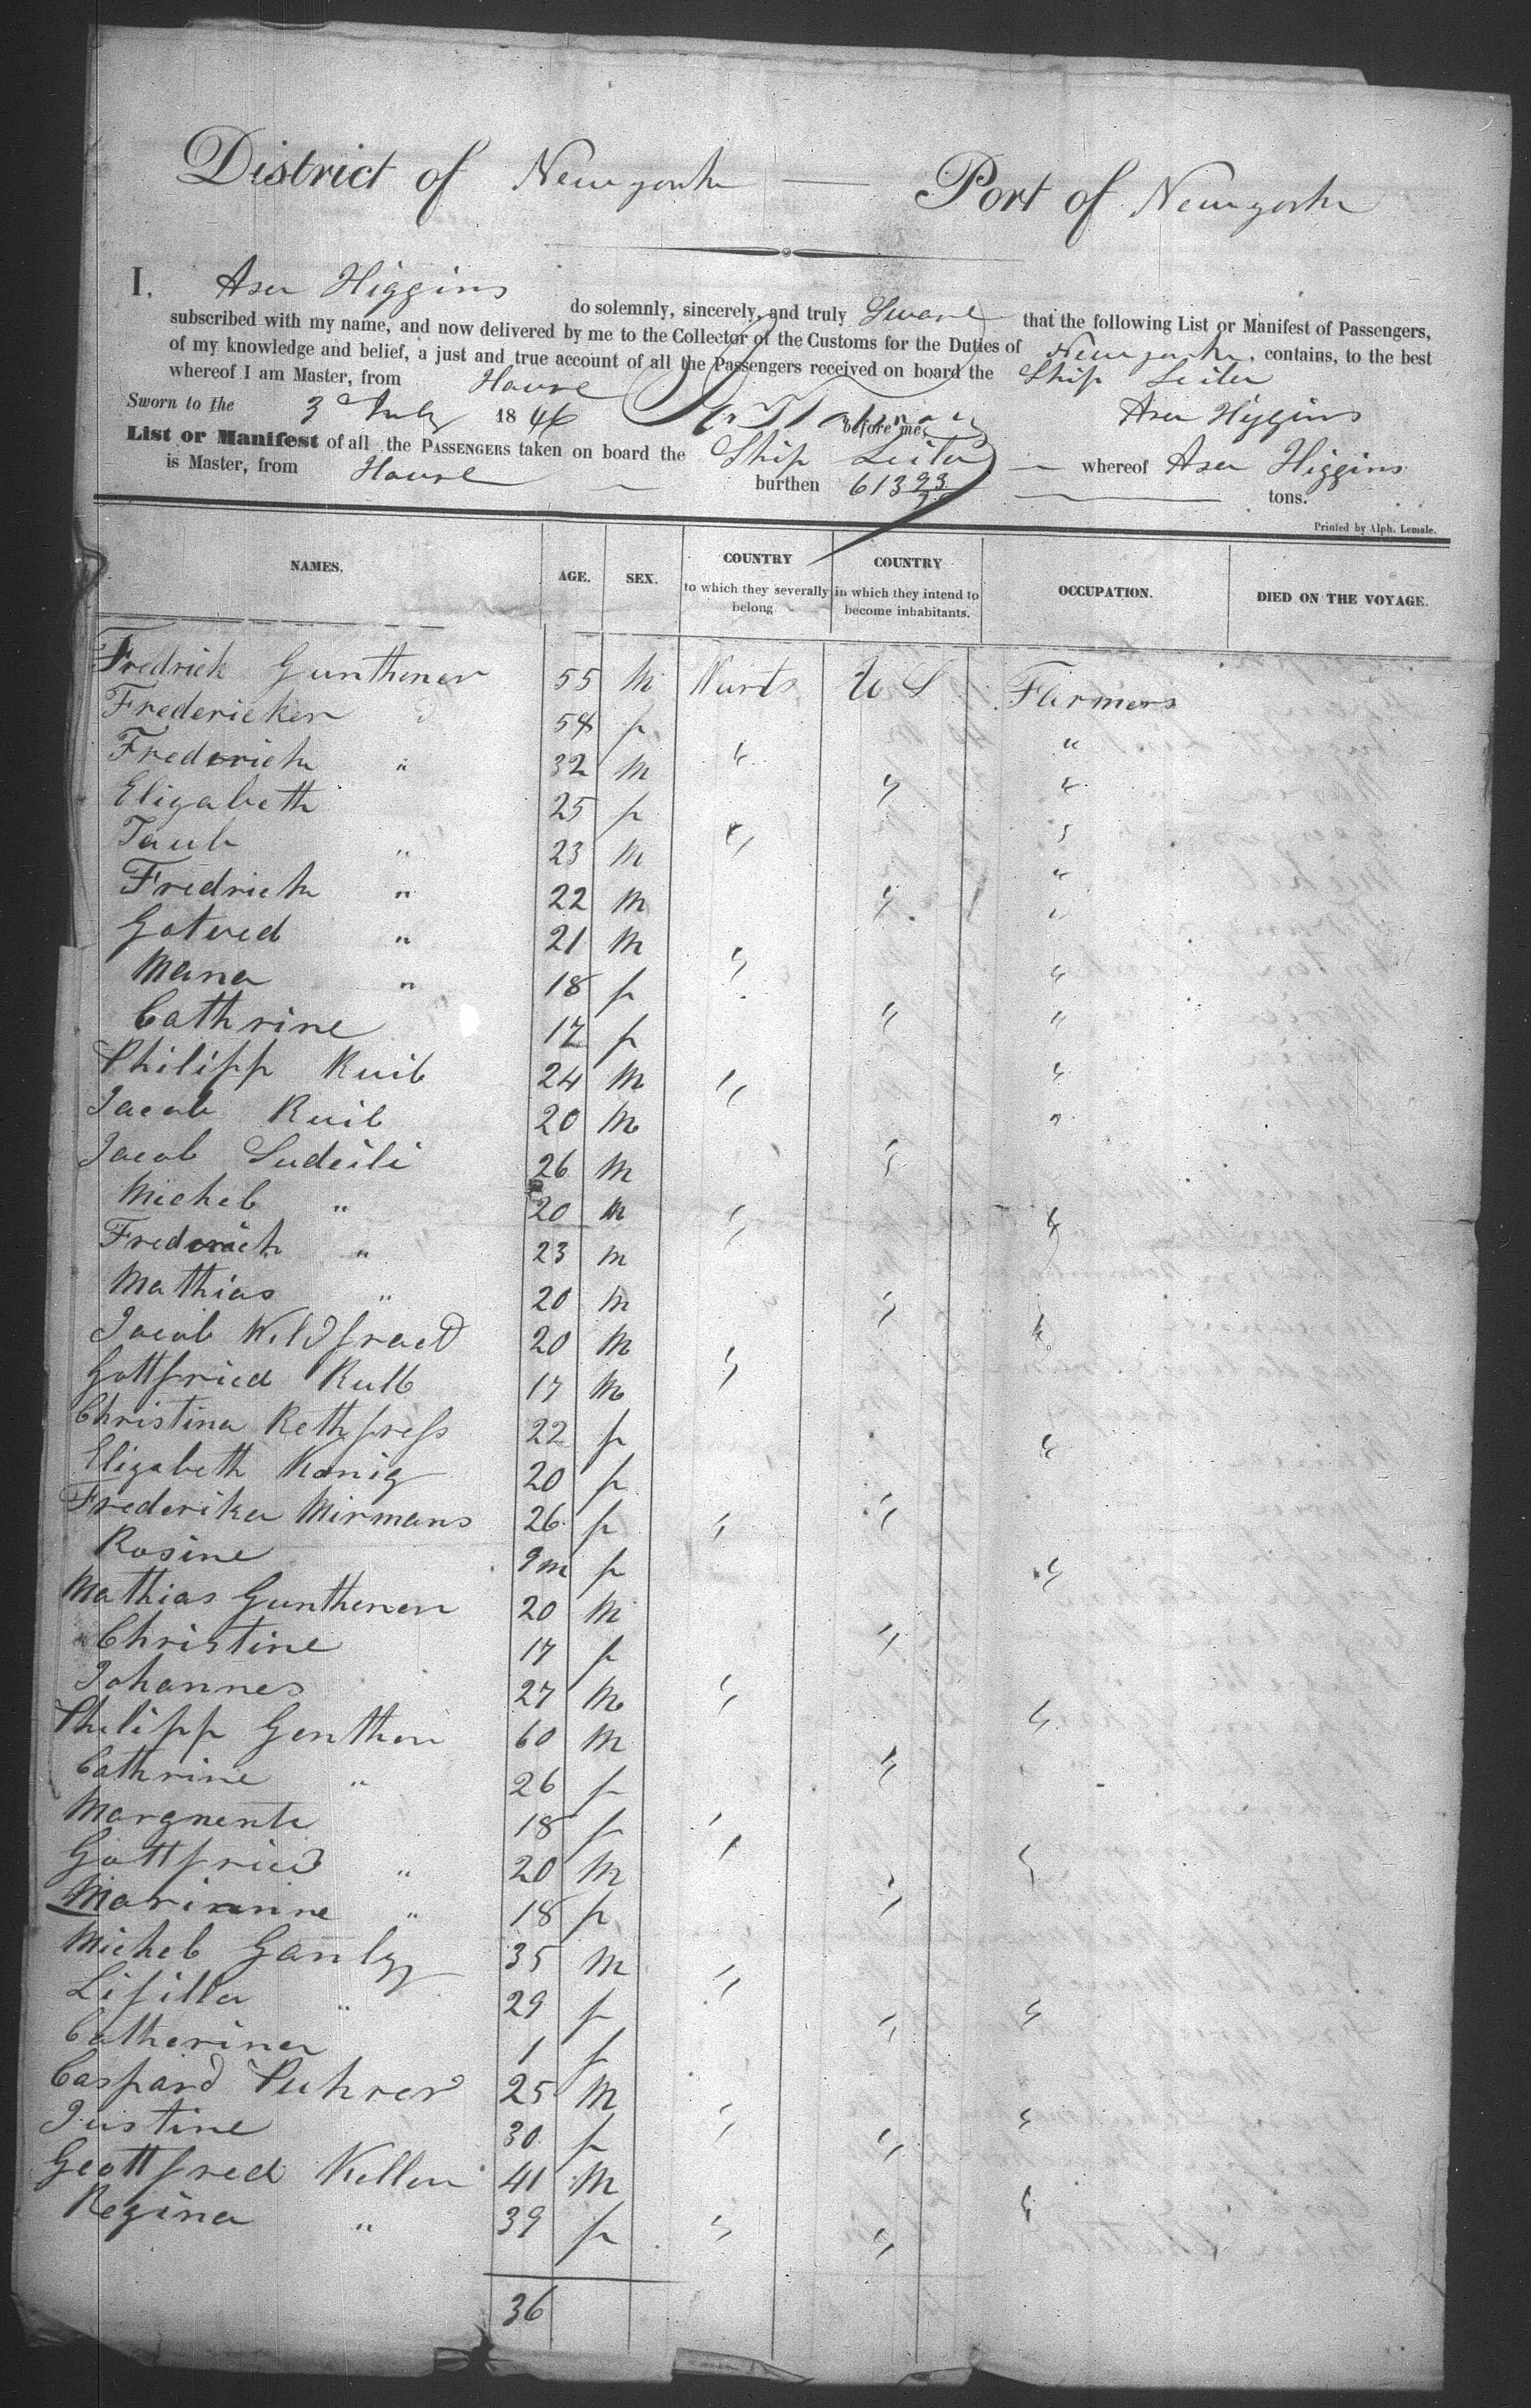 District of Newyork — Port of Newyork
I. Asa Higgins do solemnly, sincerely, and truly Swear that the following List or Manifest of Passengers,
subscribed with my name, and now delivered by me to the Collector of the Customs for the Duties of Newyork, contains, to the best
of my knowledge and belief, a just and true account of all the Passengers received on board the Ship
whereof I am Master, from Havre
Sworn to the 3 July 1846 before me, Asa Higgins
List or Manifest of all the PASSENGERS taken on board the Ship — whereof Asa Higgins
is Master, from Havre — burthen 613 — tons.
Printed by Alph. Lemale.
NAMES. AGE. SEX. COUNTRY to which they severally belong COUNTRY in which they intend to become inhabitants. OCCUPATION. DIED ON THE VOYAGE.
Fredrich Gunthener 55 M Wurts U S Farmers
Fredericker 54 f "
Frederich " 32 M " "
Elizabeth 25 f " "
" 23 M " "
Fredrich " 22 M " "
" 21 M " "
Maria " 18 f "
Cathrine 17 f " "
Philipp Kuib 24 M " "
Jacob Kuib 20 M "
Jacob 26 M "
Michel " 20 M " "
Frederich " 23 M
Mathias " 20 M "
Jacob 20 M "
Gottfried Kulb 17 M "
Christina 22 f "
Elizabeth Konig 20 f
Frederika Mirmans 26 f " "
Rosine 9m f "
Mathias Gunthener 20 M
Christine 17 f "
Johannes 27 M "
Philipp Genthen 60 M "
Cathrine " 26 f "
18 f "
Gottfried " 20 M " "
" 18 f "
Michel 35 M "
" 29 f " "
Catherina 1 f
Caspard 25 M " "
Justine 30 f "
Geottfred Keller 41 M "
Regina " 39 f " "
36